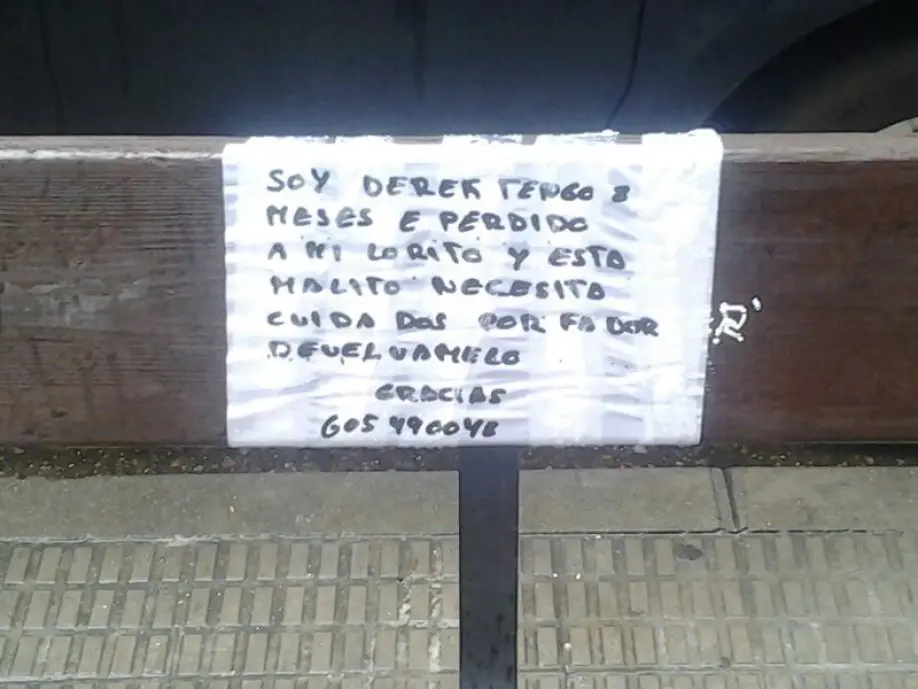 SOY DEREK TENGO 8
MESES E PERDIDO
A MI LORITO Y ESTA
MALITO NECESITA
CUIDA DOS POR FA BOR
DEVUELVAMELO
GRACIAS
605 490048